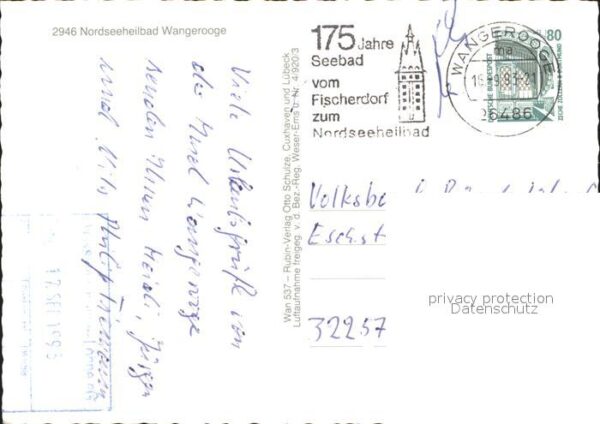 2946 Nordseeheilbad Wangerooge
175 Jahre
Seebad
vom
Fischerdorf
zum
Nordseeheilbad
WANGEROOGE
ma
26486
80
DEUTSCHE BUNDESPOST
Viele Urlaubsgrüße von
der Insel Wangerooge
senden Ihnen Heidi, Jürgen
und
Wan 537 – Rubin-Verlag Otto Schulze, Cuxhaven und Lübeck
Luftaufnahme freigeg. v. d. Bez.-Reg. Weser-Ems u. Nr. 4/920/3
Volksba
Eschst
32257
privacy protection
Datenschutz